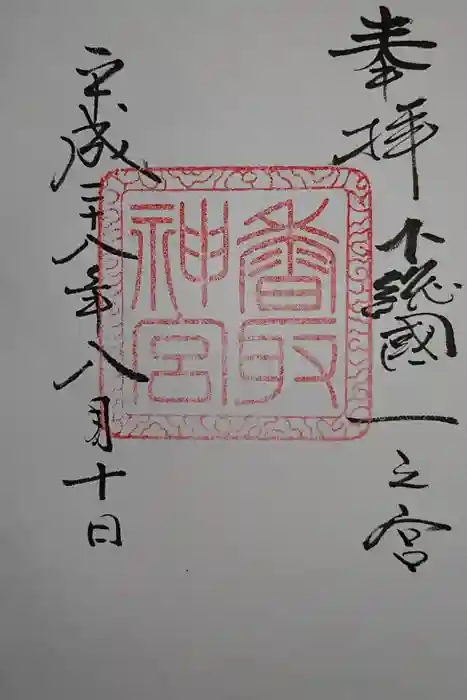 奉拝
下総國一之宮
香取
神宮
平成二十八年八月十日